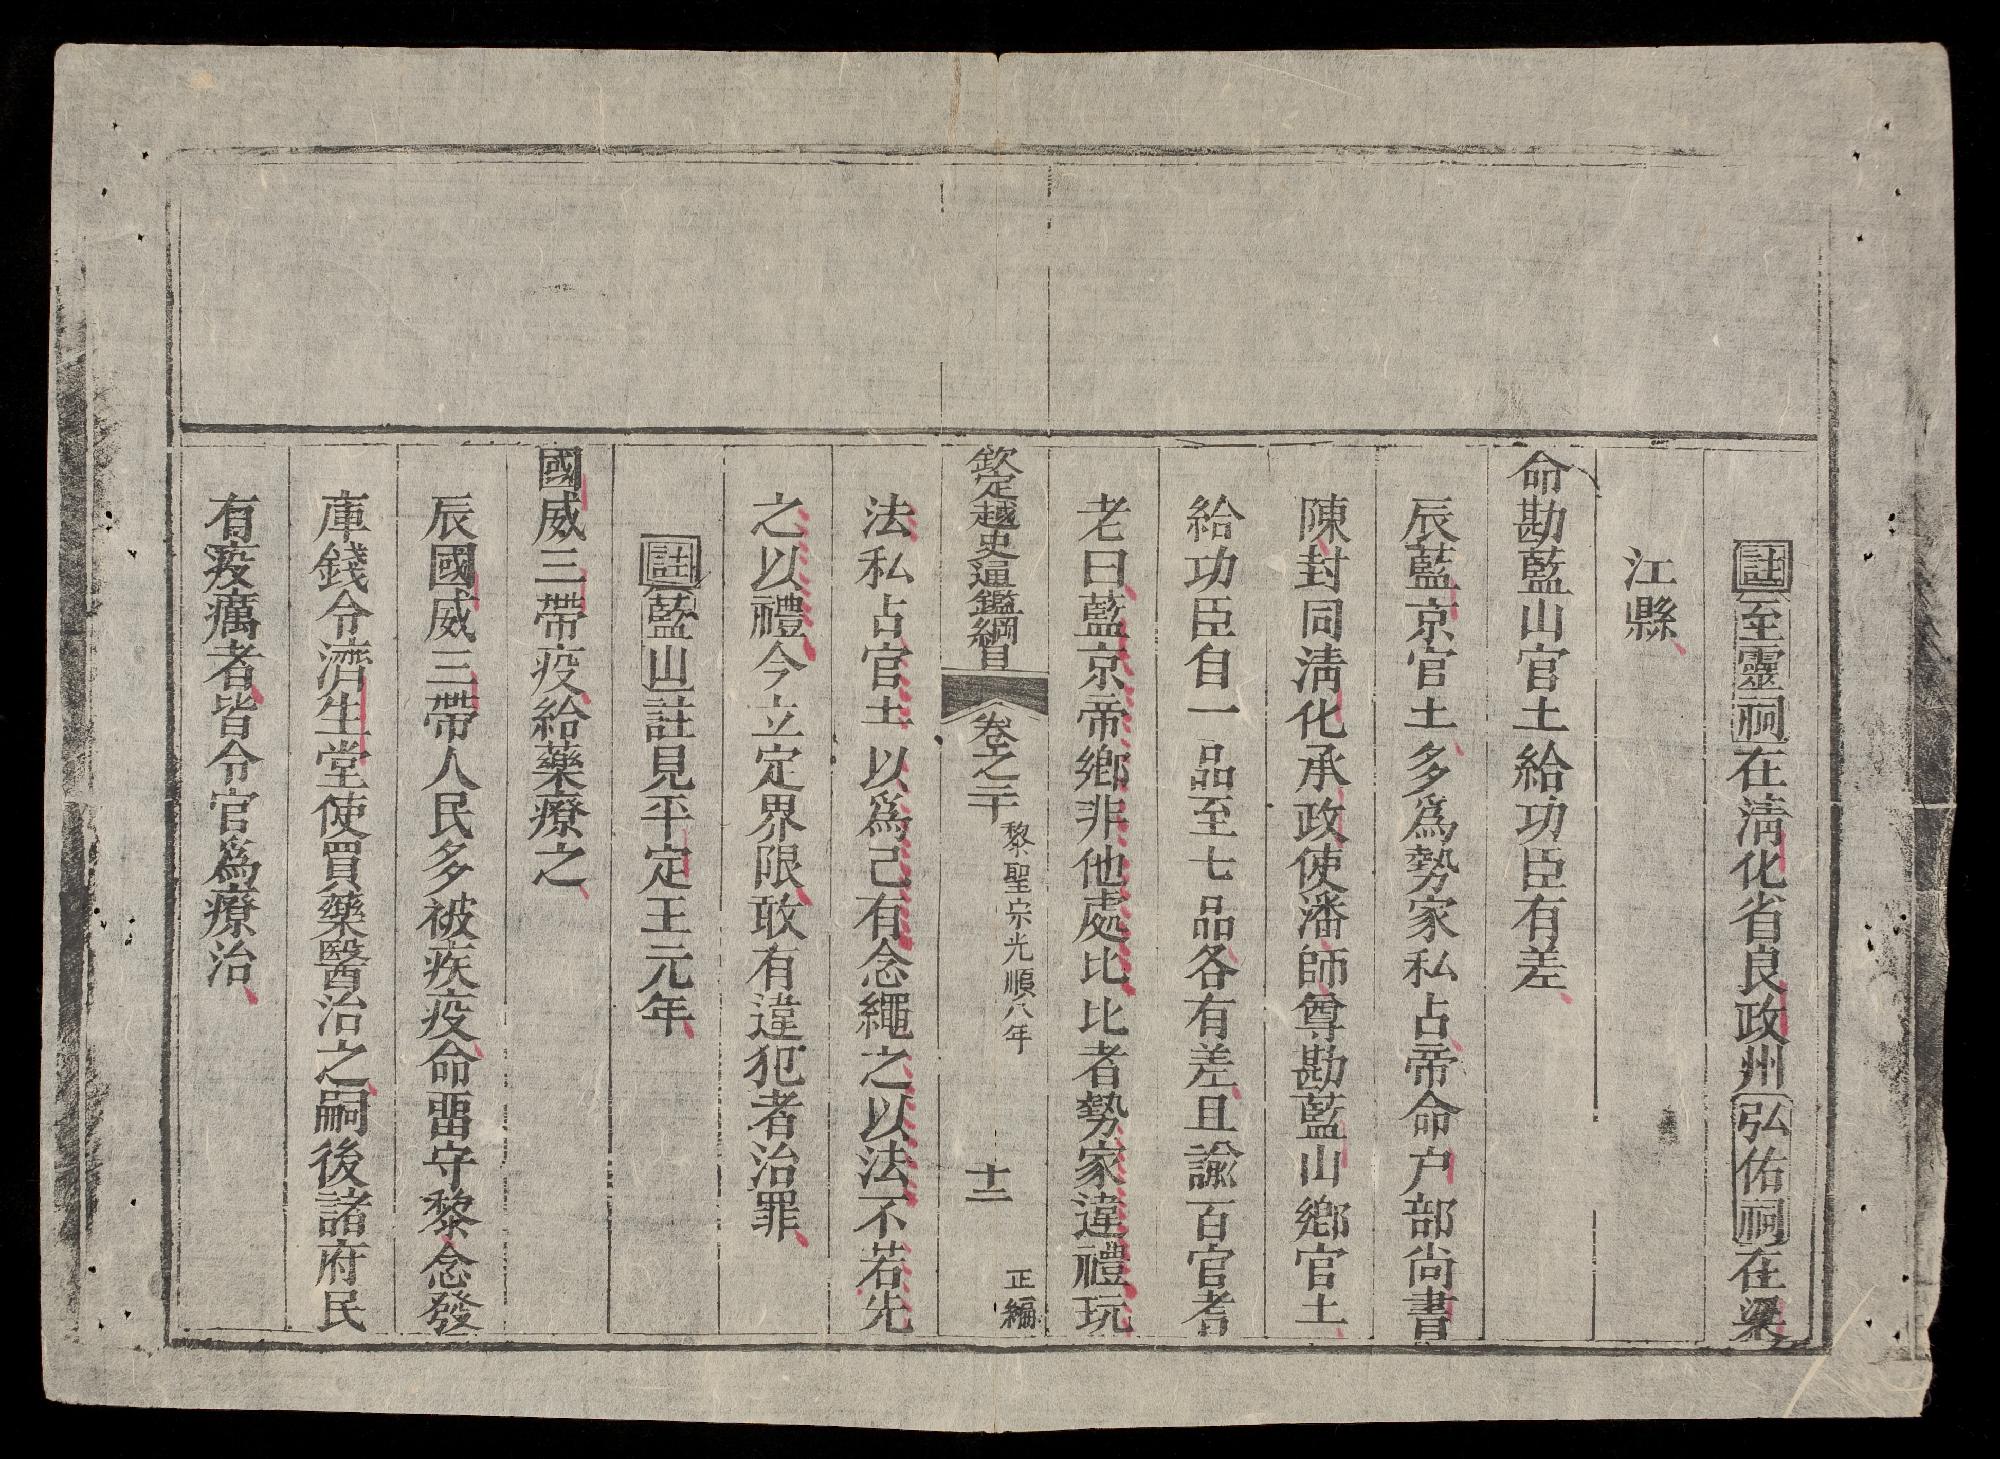 註至靈祠在清化省良政州弘佑祠在梁
江縣
命勘藍山官土給功臣有差
辰藍京官土多爲勢家私占帝命户部尚書
陳封同清化承政使潘師尊勘藍山鄉官土
給功臣自一品至七品各有差且諭百官耆
老曰藍京帝鄉非他處比比者勢家違禮玩
欽定越史通鑑綱目
卷之二十
黎聖宗光順八年
十二
正編
法私占官土以爲己有念繩之以法不若先
之以禮今立定界限敢有違犯者治罪
註藍山註見平定王元年
國威三帶疫給藥療之
辰國威三帶人民多被疾疫命畱守黎念發
庫錢令濟生堂使買藥醫治之嗣後諸府民
有疫癘者皆令官爲療治